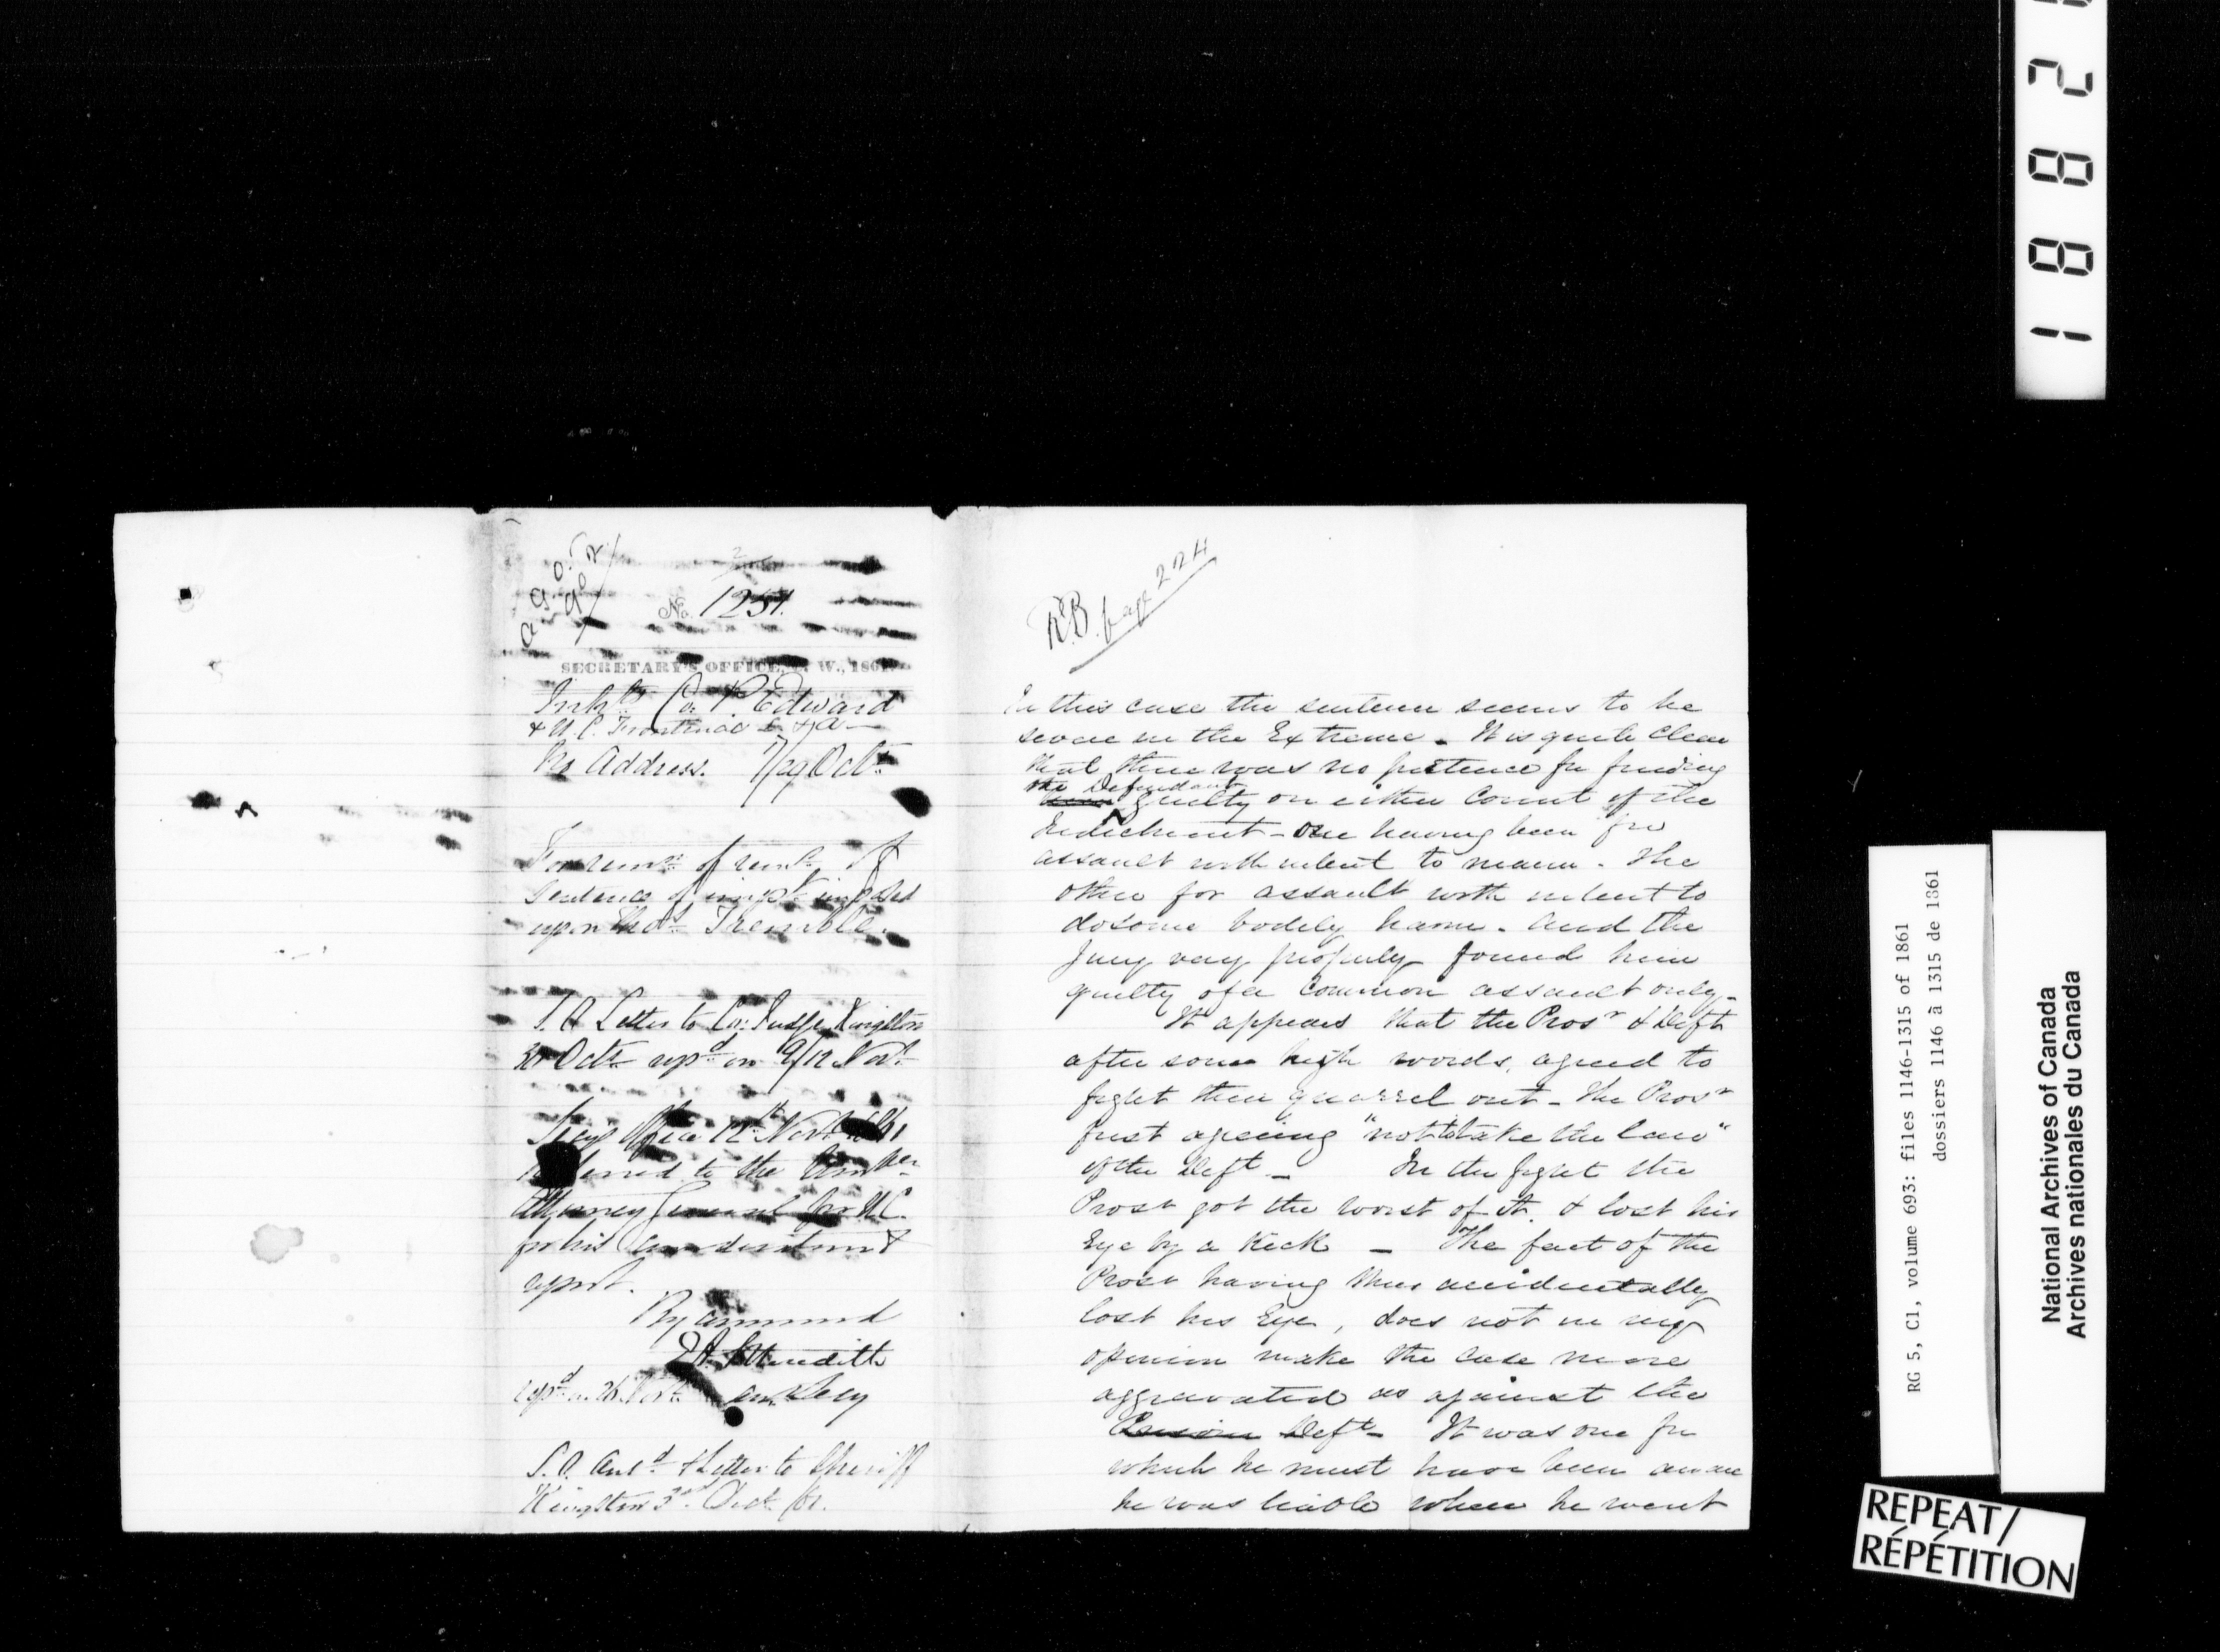 No. 1251.
SECRETARY'S OFFICE, C. W., 186
Inhts Co. P. Edward
& U.C. Frontenac L & A
No Address. 7/29 Octr
of
Sentence of imprt imposed
upon Thos Tremble.
S.O. Letter to Co: Judge Kingston
30 Octr repd on 9/12 Novr
Secys Office 12th Novr 1861
Referred to the
Attorney General for U.C.
for his consideration &
report.
By command
E A Meredith
Asst Secy
S.O. Ansd & Letter to Sheriff
Kingston 3rd Dect /61.
R.B. page 224
In this case the sentence seems to be
severe in the Extreme. It is quite clear
that there was no pretence for finding
the Defendant
guilty on either Count of the
Indictment - One having been for
assault with intent to maim. The
other for assault with intent to
do some bodily harm. And the
Jury very properly found him
guilty of a Common assault only -
It appears that the Prosr & Deft
after some high words, agreed to
fight their quarrel out - the Prosr
first agreeing "not to take the law"
of the Deft - In the fight the
Prosr got the worst of it, & lost his
Eye by a Kick - The fact of the
Prosr having thus accidentally
lost his Eye, does not in my
opinion make the case more
aggravated as against the
Deft - It was one for
which he must have been aware
he was liable when he went
18828
RG 5, C1, volume 693: files 1146-1315 of 1861
dossiers 1146 à 1315 de 1861
National Archives of Canada
Archives nationales du Canada
REPEAT/
RÉPÉTITION